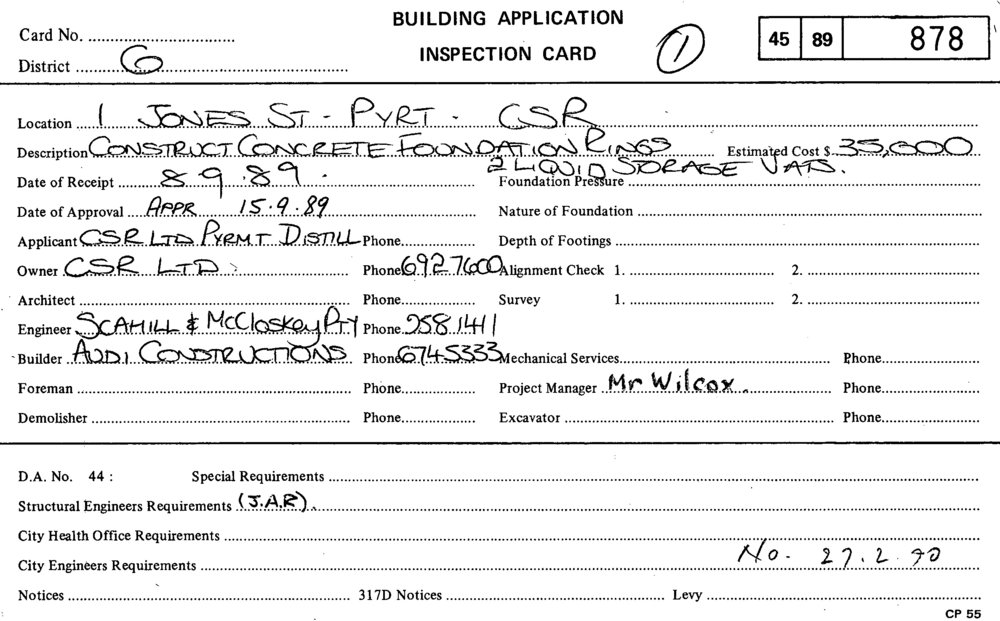 BUILDING APPLICATION
INSPECTION CARD
Card No.
District 6
1
45 89 878
Location 1 JONES ST - PYRT - CSR
Description CONSTRUCT CONCRETE FOUNDATION RINGS Estimated Cost $ 35,000
2 LIQUID STORAGE VATS.
Date of Receipt 8.9.89. Foundation Pressure
Date of Approval APPR 15.9.89 Nature of Foundation
Applicant CSR LTD PYRMT DISTILL Phone Depth of Footings
Owner CSR LTD Phone 6927600 Alignment Check 1. 2.
Architect Phone Survey 1. 2.
Engineer SCAHILL & McCloskey PTY Phone 958 1411
Builder AUDI CONSTRUCTIONS Phone 6745333 Mechanical Services Phone
Foreman Phone Project Manager Mr Wilcox Phone
Demolisher Phone Excavator Phone
D.A. No. 44 : Special Requirements
Structural Engineers Requirements (J.A.R).
City Health Office Requirements
City Engineers Requirements No. 27.2.90
Notices 317D Notices Levy
CP 55